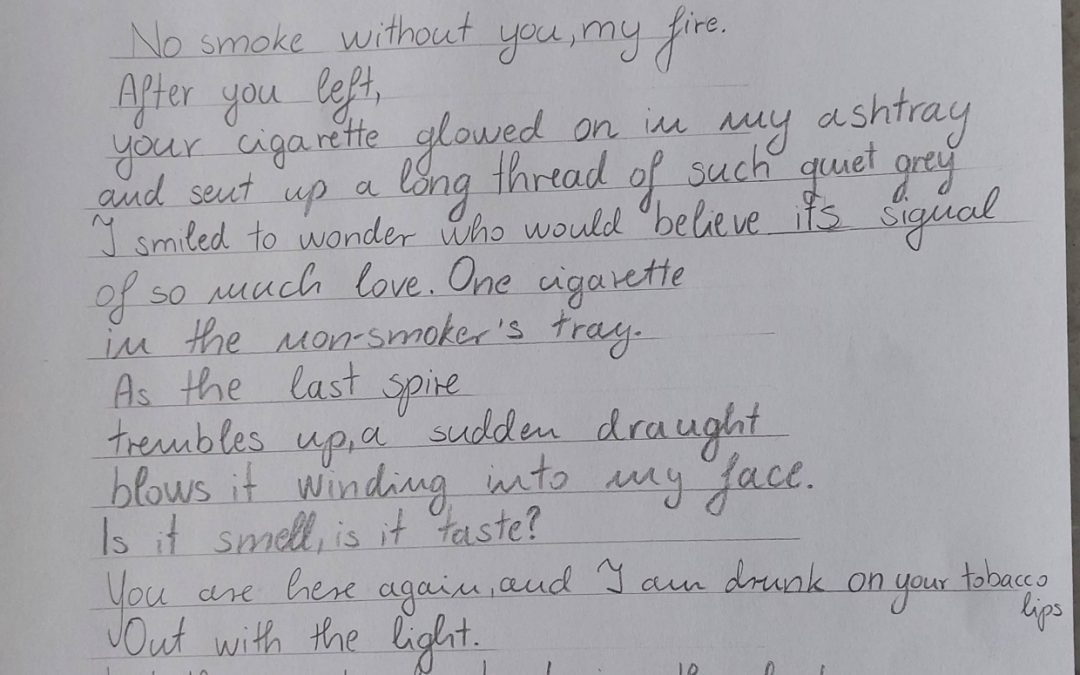 No smoke without you, my fire.
After you left,
your cigarette glowed on in my ashtray
and sent up a long thread of such quiet grey
I smiled to wonder who would believe its signal
of so much love. One cigarette
in the non-smoker's tray.
As the last spire
trembles up, a sudden draught
blows it winding into my face.
Is it smell, is it taste?
You are here again, and I am drunk on your tobacco
lips
Out with the light.